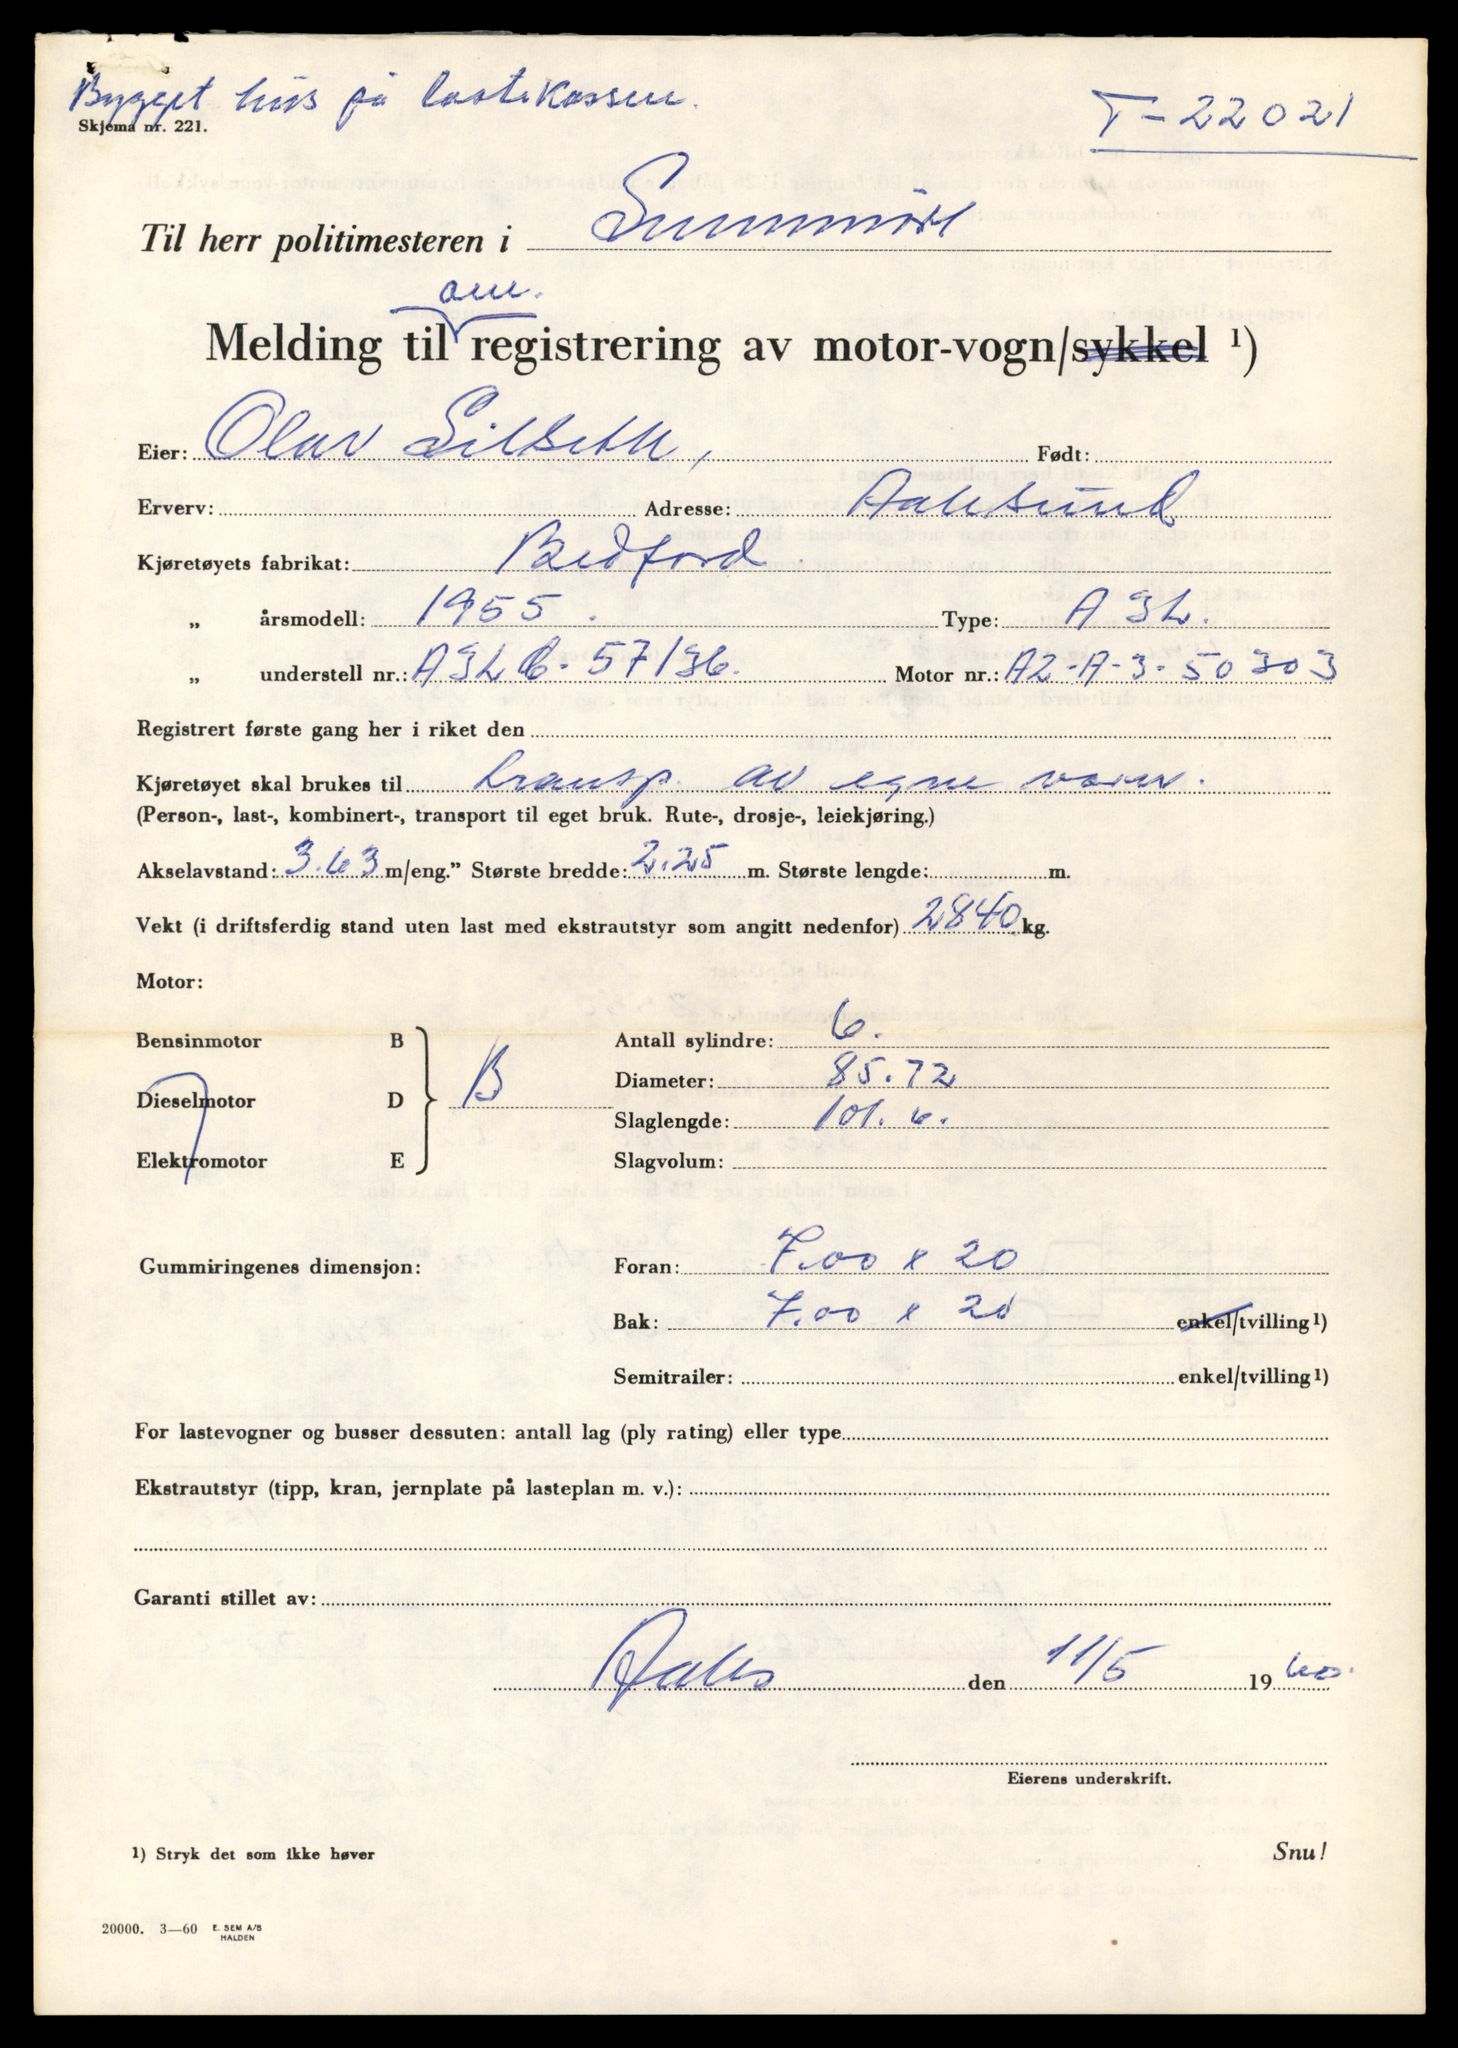 Bygget hus på lastekassen.
T-22021
Skjema nr. 221.
Til herr politimesteren i Sunnmöre
om.
Melding til registrering av motor-vogn/sykkel ¹)
Eier: Olav Silseth, Født:
Erverv: Adresse: Aalesund
Kjøretøyets fabrikat: Bedford
„ årsmodell: 1955. Type: A3L.
„ understell nr.: A3LC-57136. Motor nr.: A2-A-3-50303
Registrert første gang her i riket den
Kjøretøyet skal brukes til transp. av egne varer.
(Person-, last-, kombinert-, transport til eget bruk. Rute-, drosje-, leiekjøring.)
Akselavstand: 3.63 m/eng.” Største bredde: 2.25 m. Største lengde: m.
Vekt (i driftsferdig stand uten last med ekstrautstyr som angitt nedenfor) 2840 kg.
Motor:
Bensinmotor B Antall sylindre: 6.
B Diameter: 85.72
Dieselmotor D
Slaglengde: 101.6.
Elektromotor E Slagvolum:
Gummiringenes dimensjon: Foran: 7.00 x 20
Bak: 7.00 x 20 enkel/tvilling¹)
Semitrailer: enkel/tvilling¹)
For lastevogner og busser dessuten: antall lag (ply rating) eller type
Ekstrautstyr (tipp, kran, jernplate på lasteplan m. v.):
Garanti stillet av:
Aales den 11/5 1960.
Eierens underskrift.
1) Stryk det som ikke høver Snu!
20000. 3—60 E. SEM A/S
HALDEN